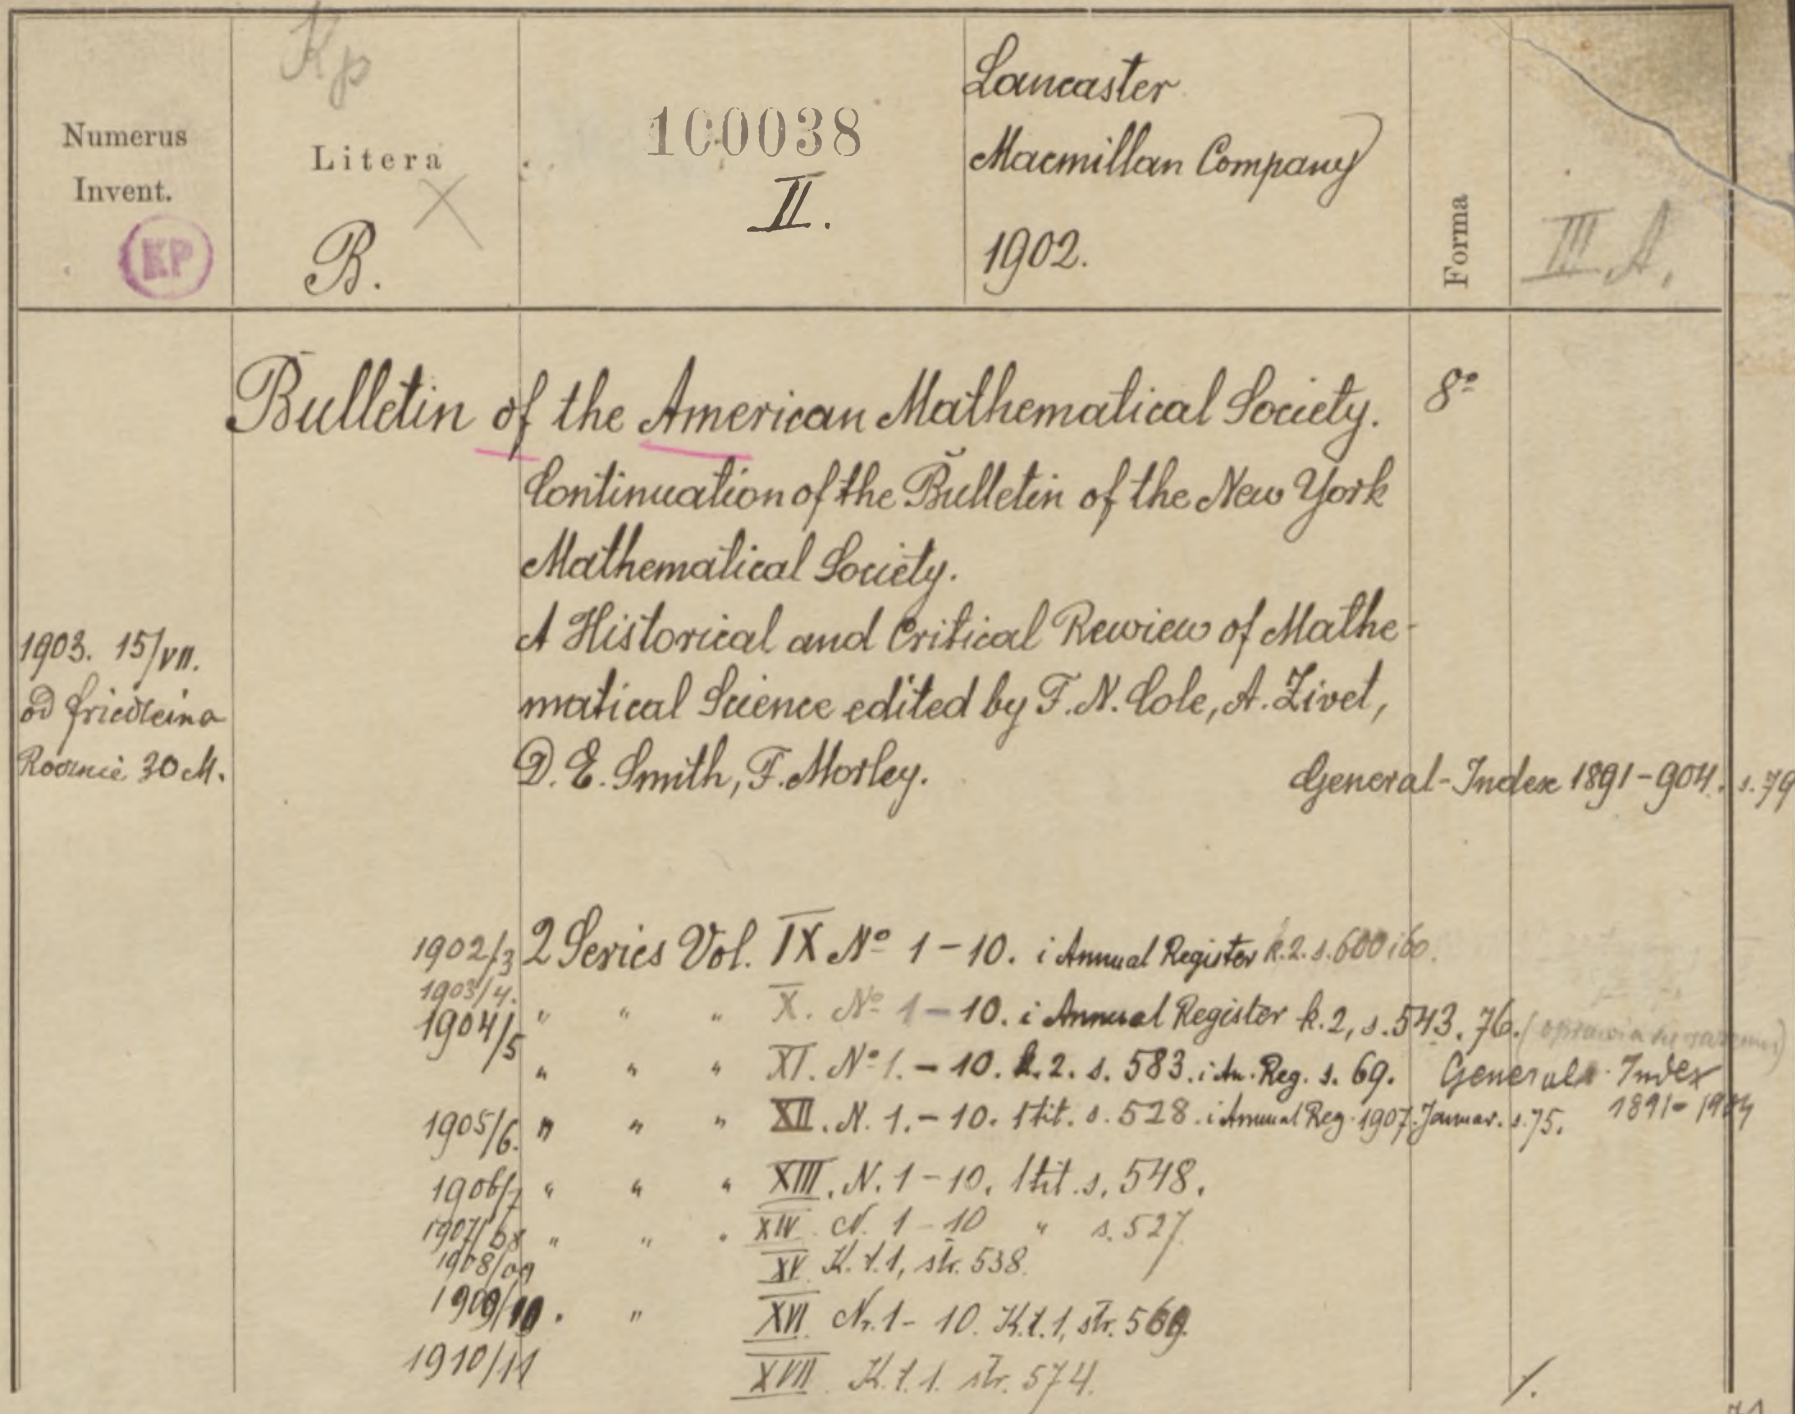 Kp
Numerus
Invent.
KP
Litera
B.
100038
II.
Lancaster
Macmillan Company
1902.
Forma
III A.
Bulletin of the American Mathematical Society. 8º
Continuation of the Bulletin of the New York
Mathematical Society.
A Historical and Critical Rewiew of Mathe-
matical Science edited by F. N. Cole, A. Zivet,
D. E. Smith, F. Morley.
1903. 15/VII.
od Friedleina
Rocznie 30 M.
General-Index 1891-904. s. 79
1902/3 2 Series Vol. IX Nº 1-10. i Annual Register k. 2. s. 600 i 60.
1903/4. " " " X. Nº 1-10. i Annual Register k. 2, s. 543. 76.
1904/5 " " " XI. Nº 1.-10. k. 2. s. 583. i An. Reg. s. 69. General Index
1891-1904
1905/6. " " " XII. N. 1.-10. 1 tit. s. 528. i Annual Reg. 1907. Januar. s. 75.
1906/7 " " " XIII. N. 1-10. 1 tit. s. 548.
1907/08 " " " XIV. N. 1-10 " s. 527.
1908/09 XV K. t. 1, str. 538.
1909/10. " XVI Nr. 1-10. K. t. 1, str. 569.
1910/11 XVII. K. t. 1. str. 574.